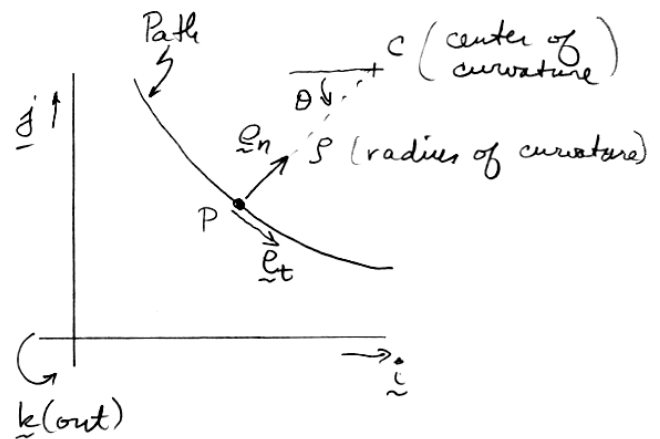 Path
C (center of
curvature)
j
θ
e_n
ρ (radius of curvature)
P
e_t
i
k (out)